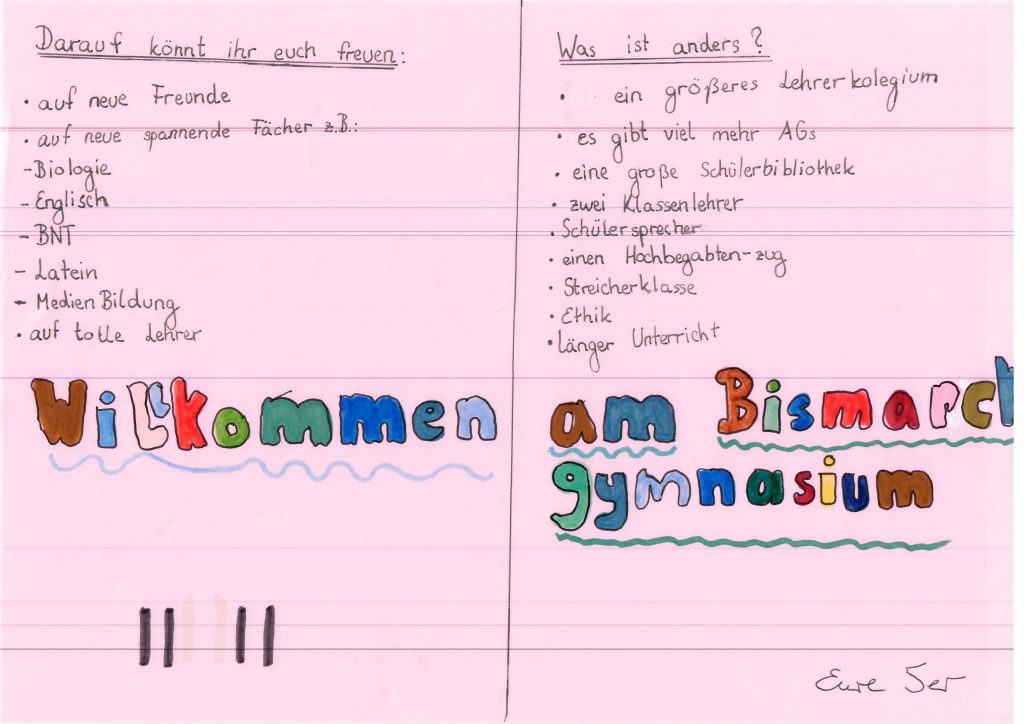 Darauf könnt ihr euch freuen:
• auf neue Freunde
• auf neue spannende Fächer z.B.:
- Biologie
- Englisch
- BNT
- Latein
- Medien Bildung
• auf tolle Lehrer
Willkommen
Was ist anders?
• ein größeres Lehrerkolegium
• es gibt viel mehr AGs
• eine große Schülerbibliothek
• zwei Klassenlehrer
• Schülersprecher
• einen Hochbegabten-zug
• Streicherklasse
• Ethik
• länger Unterricht
am Bismarck
gymnasium
Eure 5er